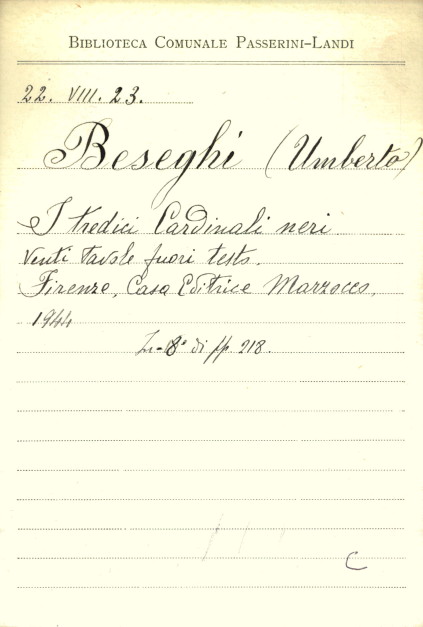 BIBLIOTECA COMUNALE PASSERINI-LANDI
22. VIII. 23.
Beseghi (Umberto)
I tredici Cardinali neri.
Venti tavole fuori testo.
Firenze, Casa Editrice Marzocco,
1944
In-8° di pp. 218.
C